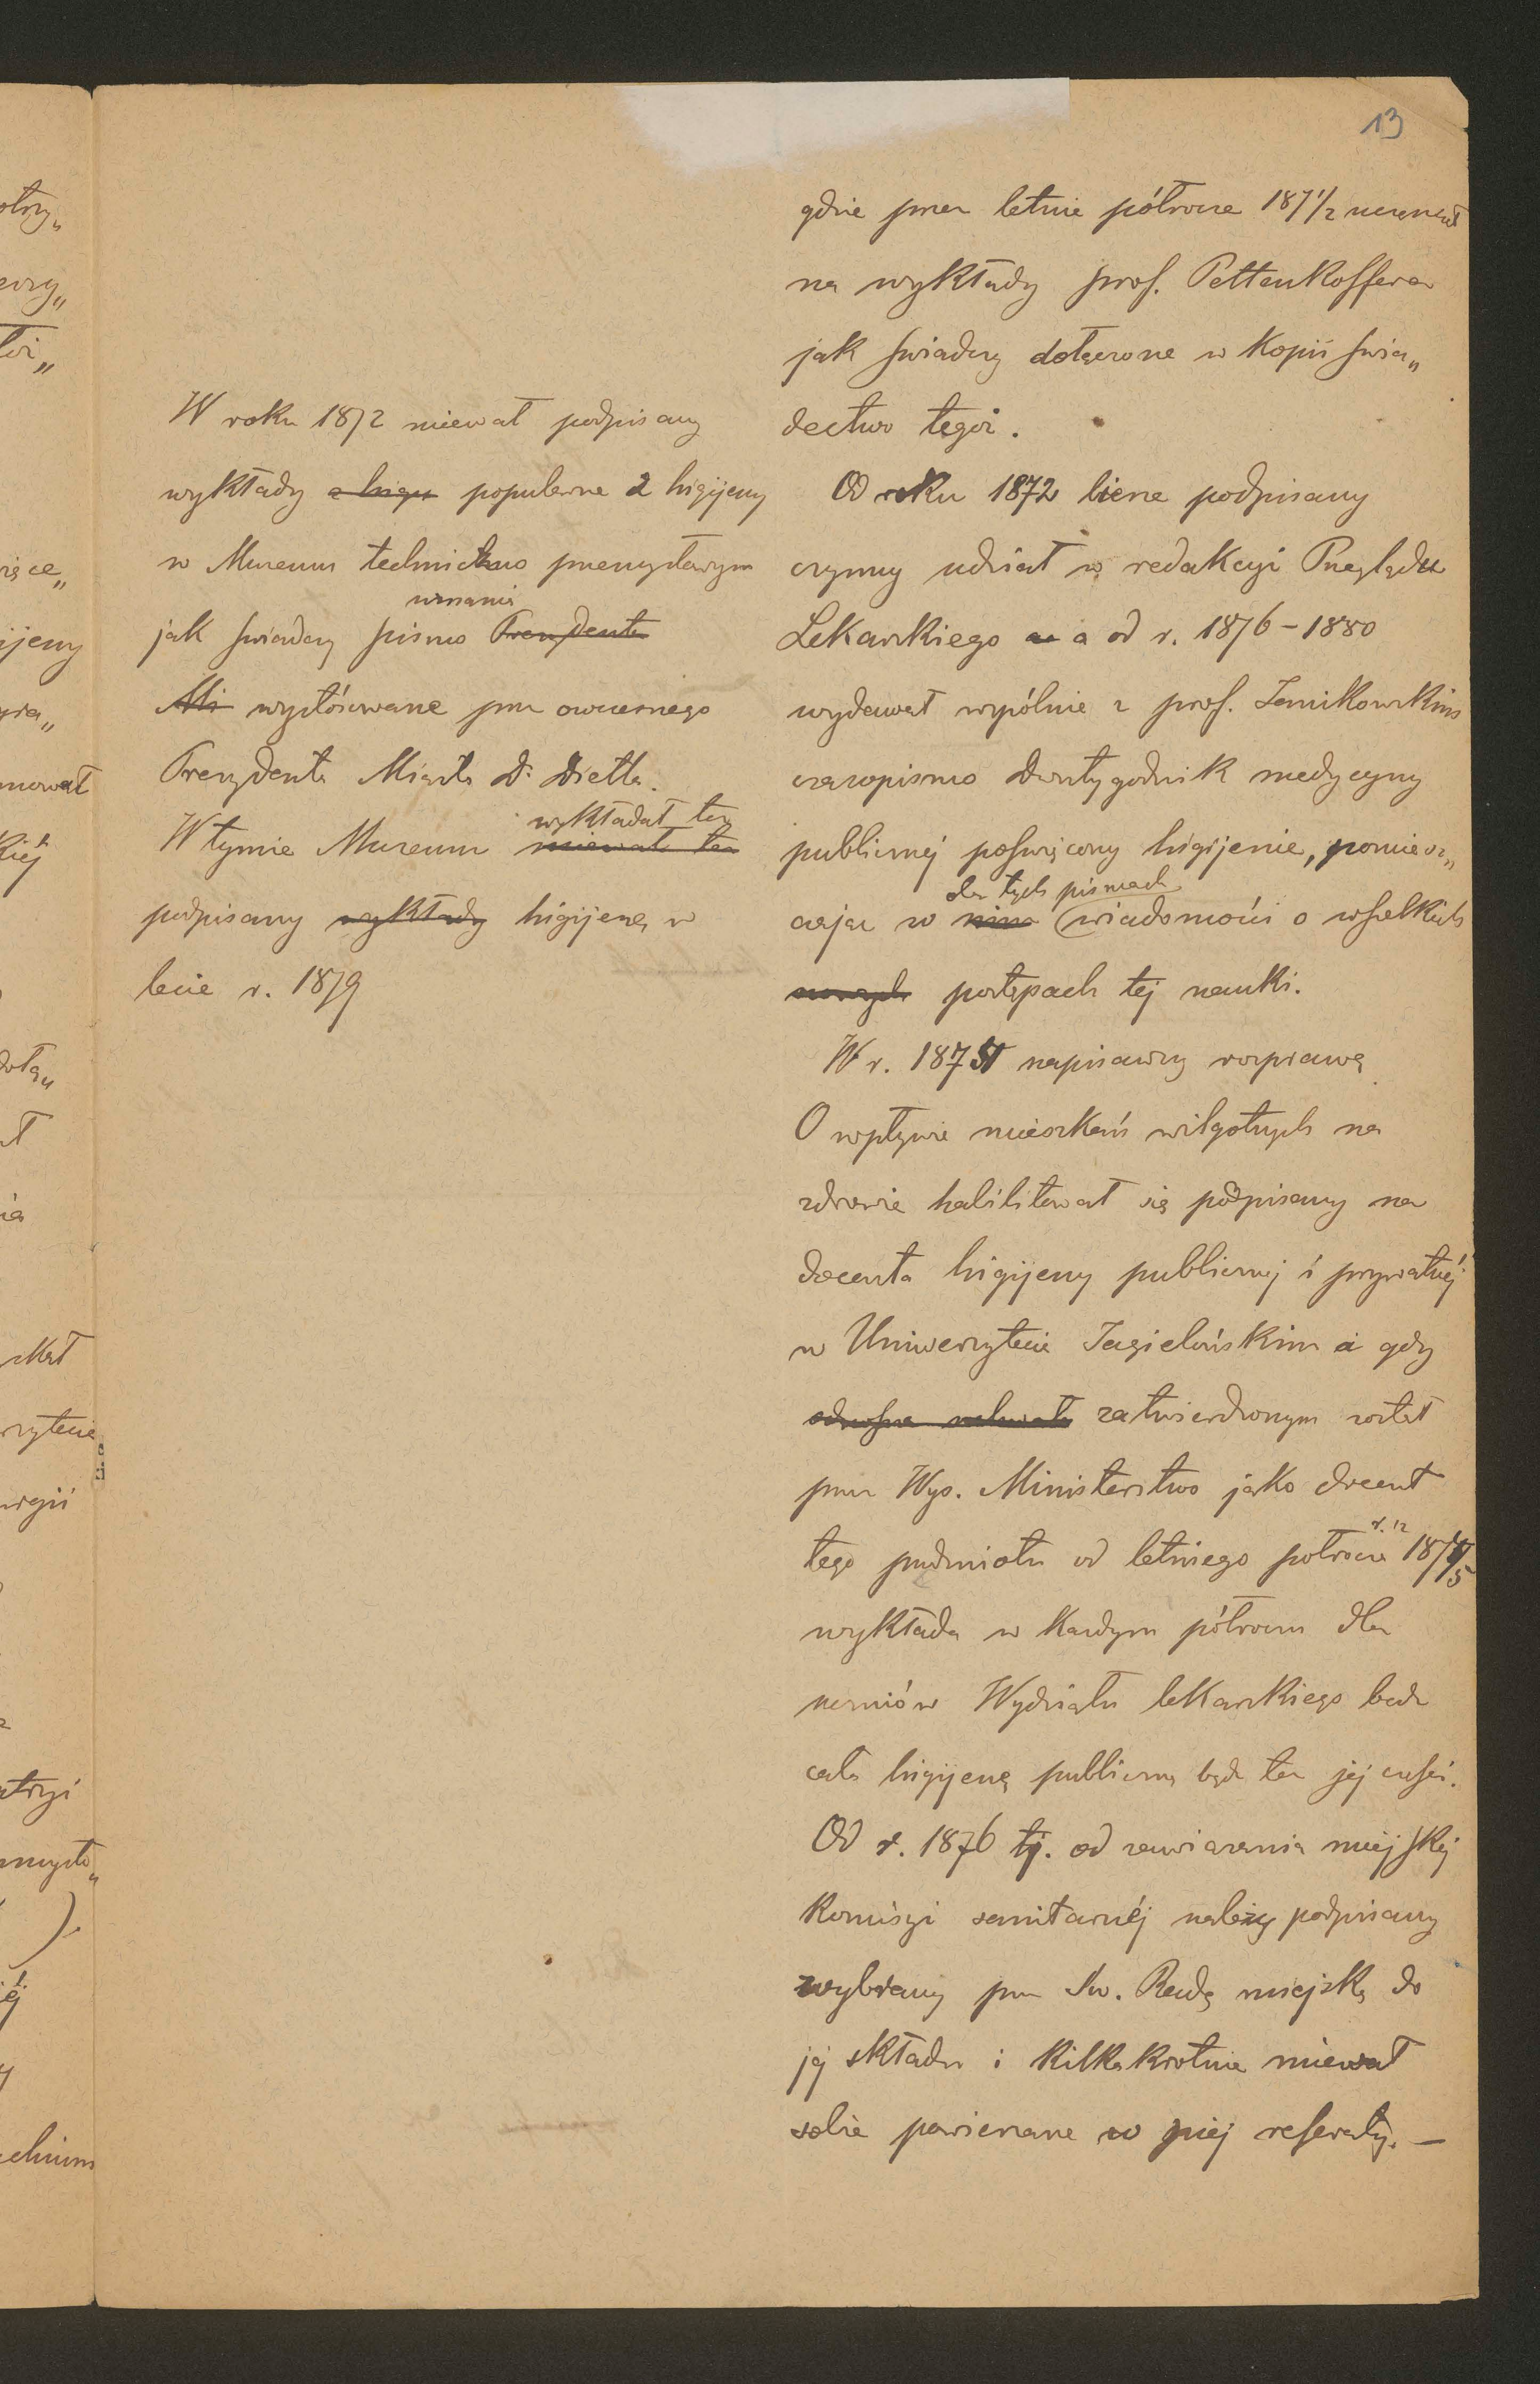 13
gdzie przez letnie półrocze 1871/2 uczęszczał
na wykłady prof. Pettenkoffera
jak świadczy dołączone w kopii świa„
dectwo tegoż.
Od roku 1872 bierze podpisany
czynny udział w redakcyi Przeglądu
Lekarskiego a od r. 1876–1880
wydawał wspólnie z prof. Janikowskim
czasopismo Dwutygodnik medycyny
publicznej poświęcony higijenie, pomiesz„
do tych pismach
czając w wiadomości o wszelkich
postępach tej nauki.
W r. 187 napisawszy rozprawę
O wpływie mieszkań wilgotnych na
zdrowie habilitował się podpisany na
docenta higijeny publicznej i prywatnéj
w Uniwersytecie Jagielońskim a gdy
zatwierdzonym został
przez Wys. Ministerstwo jako docent
tego przedmiotu od letniego półrocza r. 1874/5
wykłada w każdym półroczu dla
uczniów Wydziału lekarskiego bądź
całą higijenę publiczną bądź też jej części.
Od r. 1876 tj. od zawiązania miejskiej
Komisyi sanitarnéj należy podpisany
wybrany przez Św. Radę miejską do
jej składu i kilkakrotnie miewał
sobie powierzane w niej referaty. —
W roku 1872 miewał podpisany
wykłady popularne z higijeny
w Muzeum techniczno przemysłowym
uznania
jak świadczy pismo Prezydenta
wystósowane przez owczesnego
Prezydenta Miasta Dr Dietla.
wykładał też
W tymże Muzeum miewał też
podpisany wykłady higijenę w
lecie r. 1879